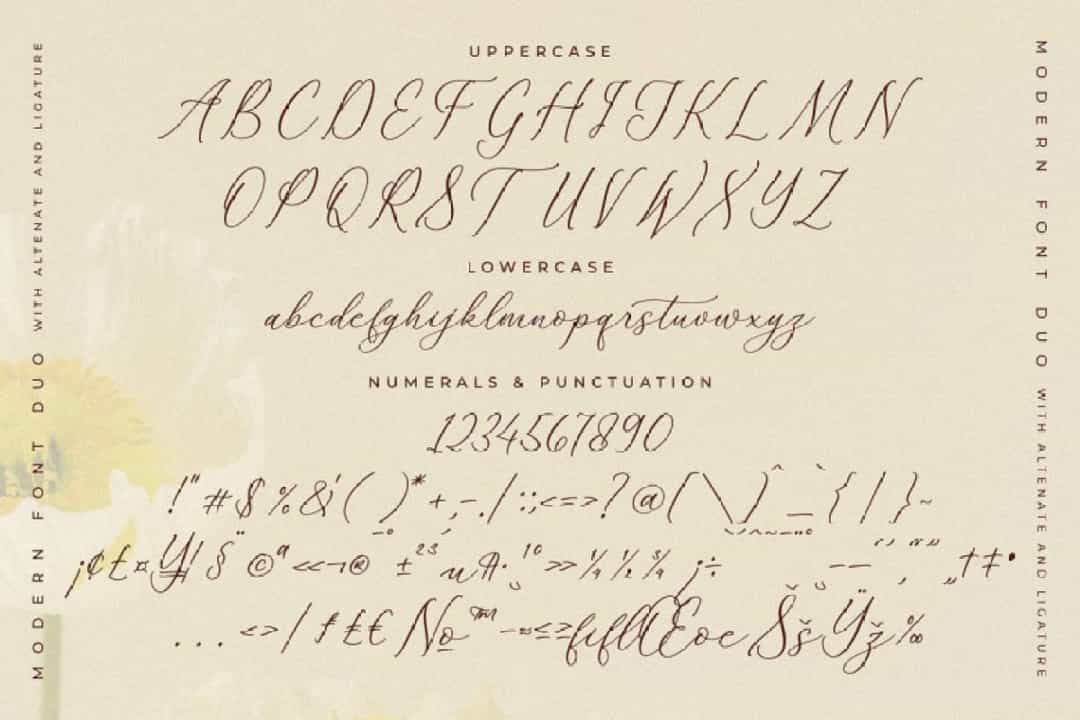 UPPERCASE
ABCDEFGHIJKLMN
OPQRSTUVWXYZ
LOWERCASE
abcdefghijklmnopqrstuvwxyz
NUMERALS & PUNCTUATION
1234567890
!"#$%&'()*+,-./:;<=>?@[\]^_`{|}~
¡¢£¤¥¦§¨©ª«¬®¯°±²³´µ¶·¸¹º»¼½¾¿÷
...<>/ ƒ££ №™ −≈≤≥fiflŒœ ŠšŸž‰
MODERN FONT DUO WITH ALTENATE AND LIGATURE
MODERN FONT DUO WITH ALTENATE AND LIGATURE